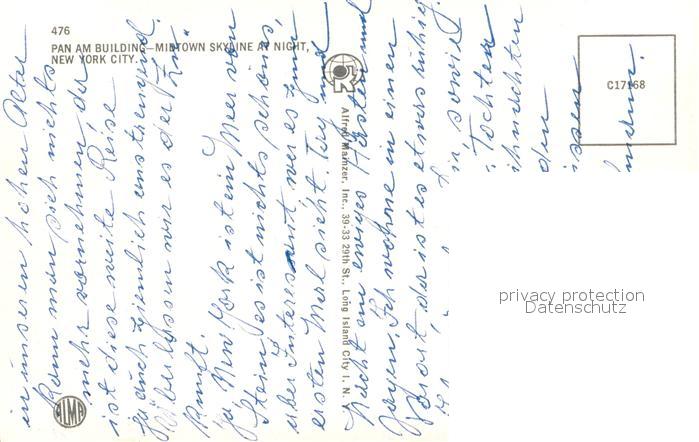 476
PAN AM BUILDING—MIDTOWN SKYLINE AT NIGHT,
NEW YORK CITY.
C17168
Alfred Mainzer, Inc., 39-33 29th St., Long Island City 1, N.
ALMA
in unseren hohen Alter
kann man sich nichts
mehr vornehmen, der
ist diese weite Reise
ja auch ziemlich anstrengend.
überlassen wir es der Zu-
kunft.
Ja, New York ist ein Meer von
Stein, es ist nichts schönes,
aber Interessant wer es zum
ersten Merl sieht. Tag und
Nacht ein ewiges Hasten und
Jagen. Ich wohne in einen
Vorort, da ist es etwas ruhig
sowie
Tochter
den
issen
privacy protection
Datenschutz